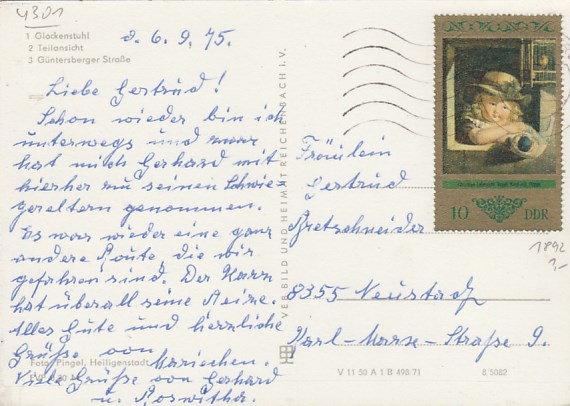 4301
1 Glockenstuhl
2 Teilansicht
3 Güntersberger Straße
d. 6. 9. 75.
Liebe Gertrud!
Schon wieder bin ich
unterwegs und zwar
hat mich Gerhard mit
hierher zu seinen Schwie-
gereltern genommen.
Es war wieder eine ganz
andere Route, die wir
gefahren sind. Der Harz
hat überall seine Reize.
Alles Gute und herzliche
Grüße von
Mariechen.
Viele Grüße von Gerhard
u. Roswitha.
Foto: Pingel, Heiligenstadt
VERLAG BILD UND HEIMAT REICHENBACH I. V.
Fräulein
Gertrud
Bretschneider
8355 Neustadt
Karl-Marx-Straße 9.
V 11 50 A 1 B 498/71
8/5082
10 DDR
1892
1,-